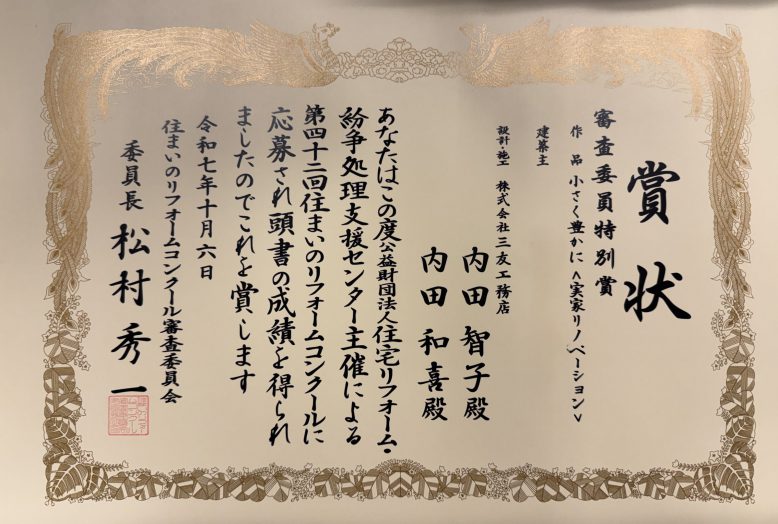 賞状
審査委員特別賞
作品 小さく豊かに<実家リノベーション>
建築主
内田 智子殿
内田 和喜殿
設計・施工 株式会社三友工務店
あなたはこの度公益財団法人住宅リフォーム・
紛争処理支援センター主催による
第四十二回住まいのリフォームコンクールに
応募され頭書の成績を得られ
ましたのでこれを賞します
令和七年十月六日
住まいのリフォームコンクール審査委員会
委員長 松村秀一